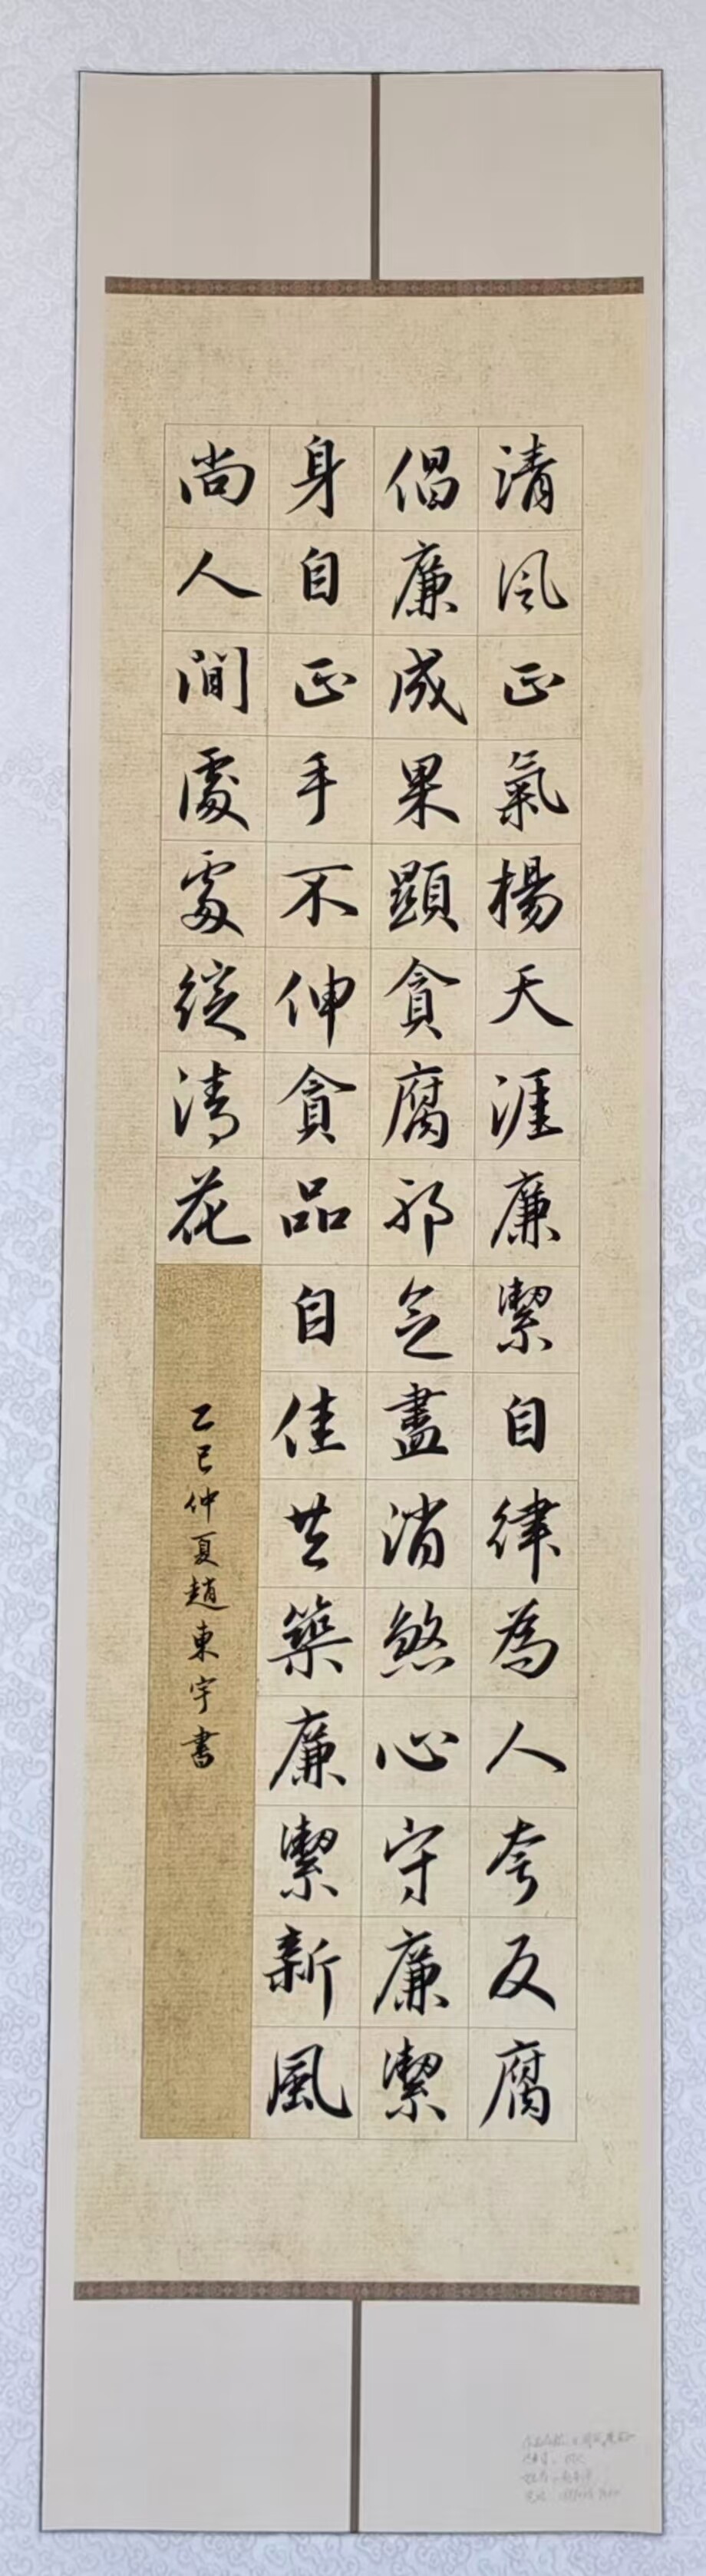 清風正氣楊天涯廉潔自律為人夸反腐
倡廉成果顯貪腐邪念盡消煞心守廉潔
身自正手不伸貪品自佳共築廉潔新風
尚人間處處綻清花
乙巳仲夏趙東宇書